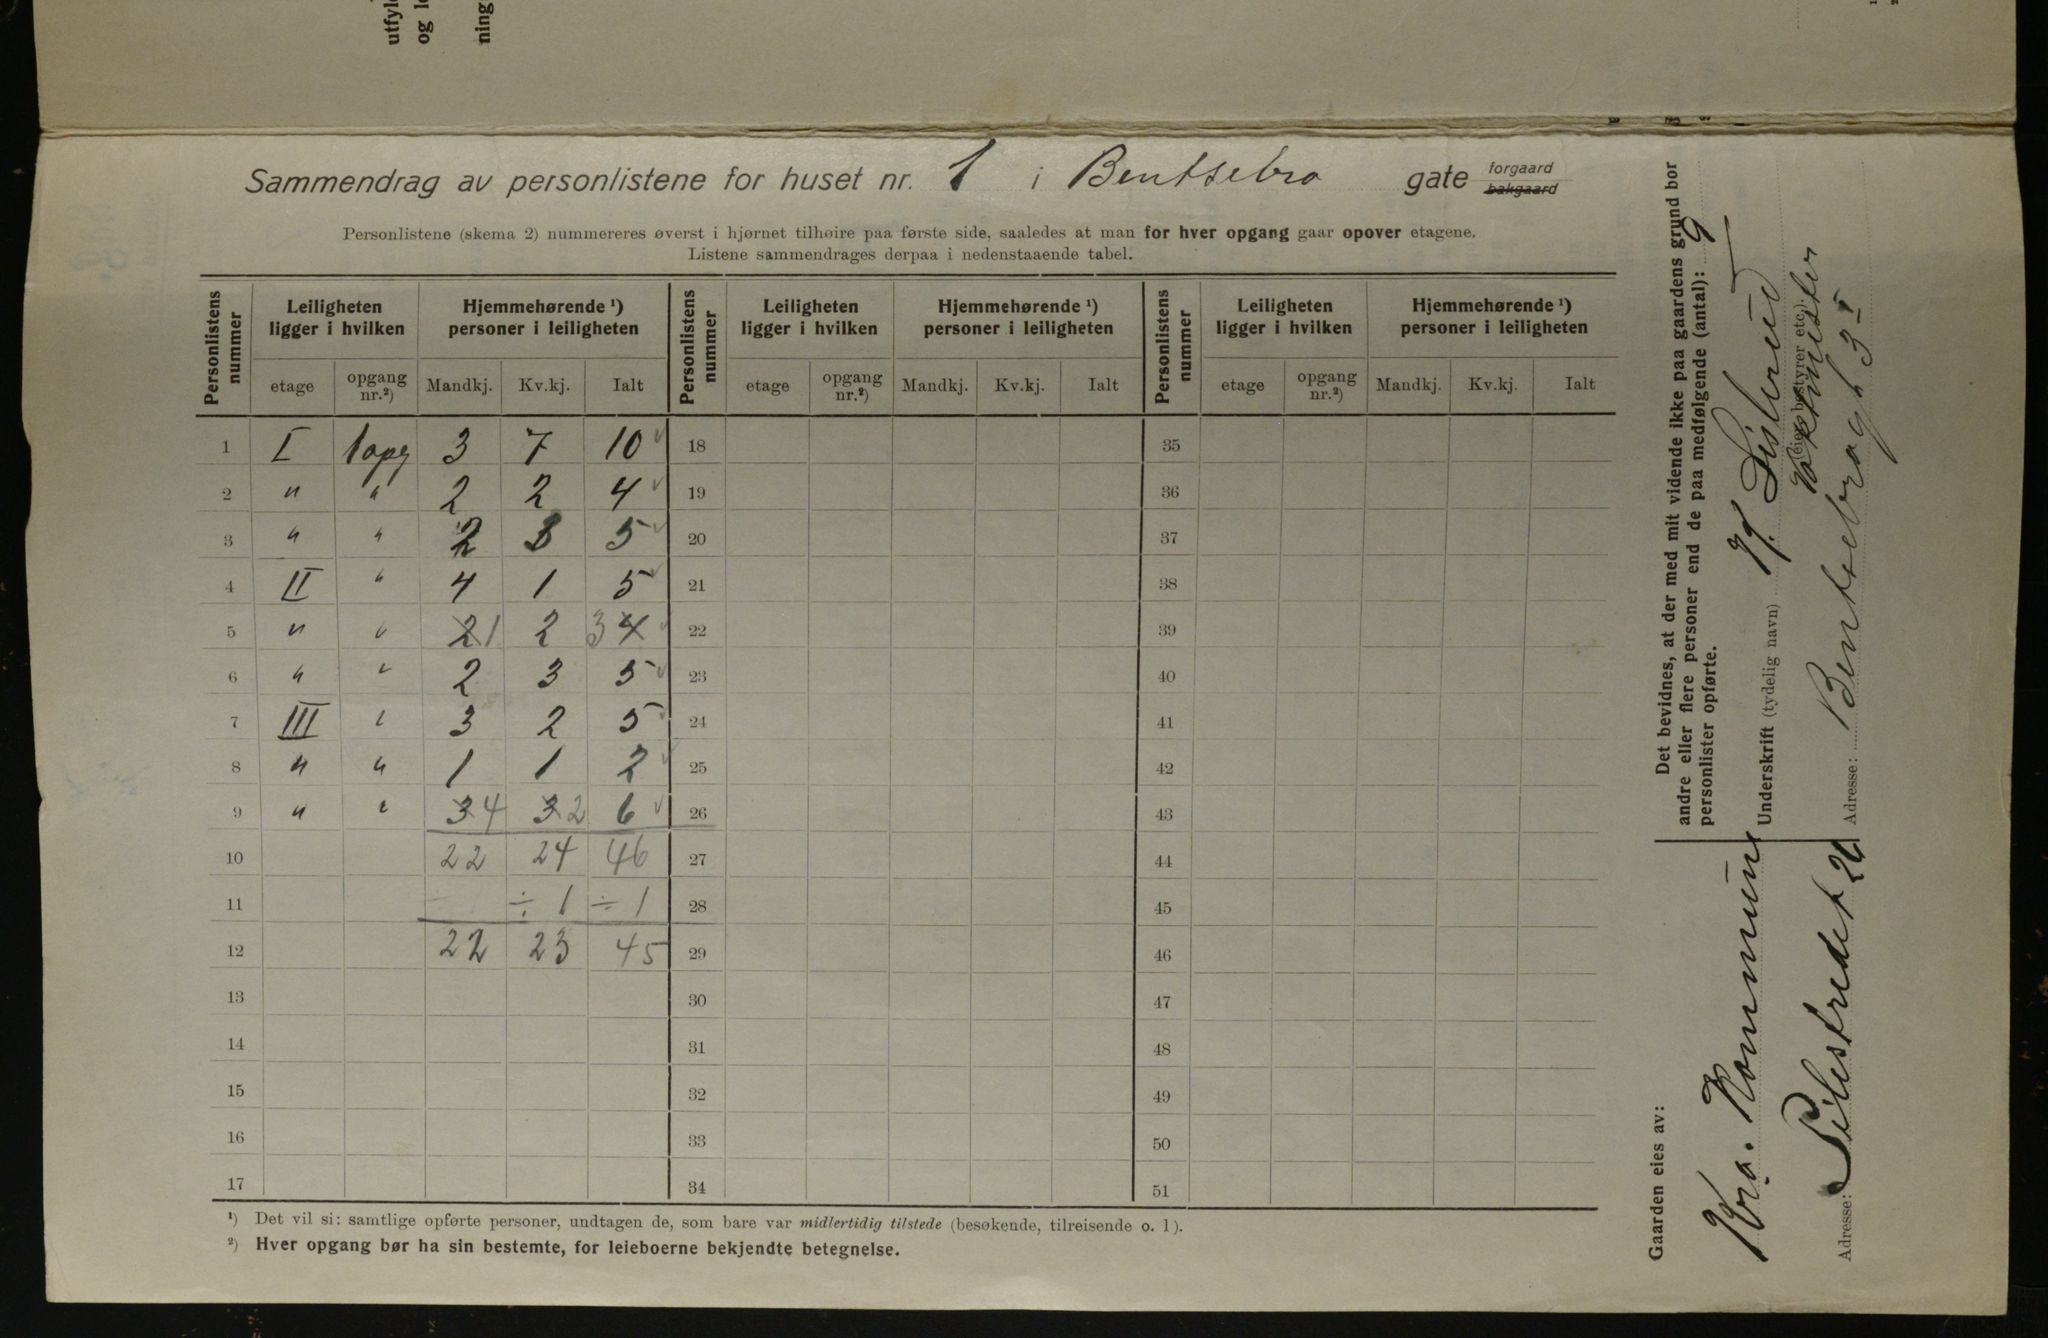 utfyl
og l
ning
Sammendrag av personlistene for huset nr. 1 i Bentsebro gate forgaard
bakgaard
Personlistene (skema 2) nummereres øverst i hjørnet tilhøire paa første side, saaledes at man for hver opgang gaar opover etagene.
Listene sammendrages derpaa i nedenstaaende tabel.
Personlistens nummer | Leiligheten ligger i hvilken | Hjemmehørende ¹) personer i leiligheten | Personlistens nummer | Leiligheten ligger i hvilken | Hjemmehørende ¹) personer i leiligheten | Personlistens nummer | Leiligheten ligger i hvilken | Hjemmehørende ¹) personer i leiligheten
etage | opgang nr.²) | Mandkj. | Kv.kj. | Ialt | etage | opgang nr.²) | Mandkj. | Kv.kj. | Ialt | etage | opgang nr.²) | Mandkj. | Kv.kj. | Ialt
1 I 1 opg 3 7 10 18 35
2 " " 2 2 4 19 36
3 " " 2 3 5 20 37
4 II " 4 1 5 21 38
5 " " 2 1 2 3 4 22 39
6 " " 2 3 5 23 40
7 III " 3 2 5 24 41
8 " " 1 1 2 25 42
9 " " 3 4 3 2 6 26 43
10 22 24 46 27 44
11 ÷ 1 ÷ 1 28 45
12 22 23 45 29 46
13 30 47
14 31 48
15 32 49
16 33 50
17 34 51
¹) Det vil si: samtlige opførte personer, undtagen de, som bare var midlertidig tilstede (besøkende, tilreisende o. l.).
²) Hver opgang bør ha sin bestemte, for leieboerne bekjendte betegnelse.
Det bevidnes, at der med mit vidende ikke paa gaardens grund bor
andre eller flere personer end de paa medfølgende (antal): 9
personlister opførte.
Underskrift (tydelig navn)
(eier, bestyrer etc.)
Vaktmester
Adresse: Bentsebrogt 3 I
Gaarden eies av:
Kra. Kommune
Adresse: Pilestredet 24